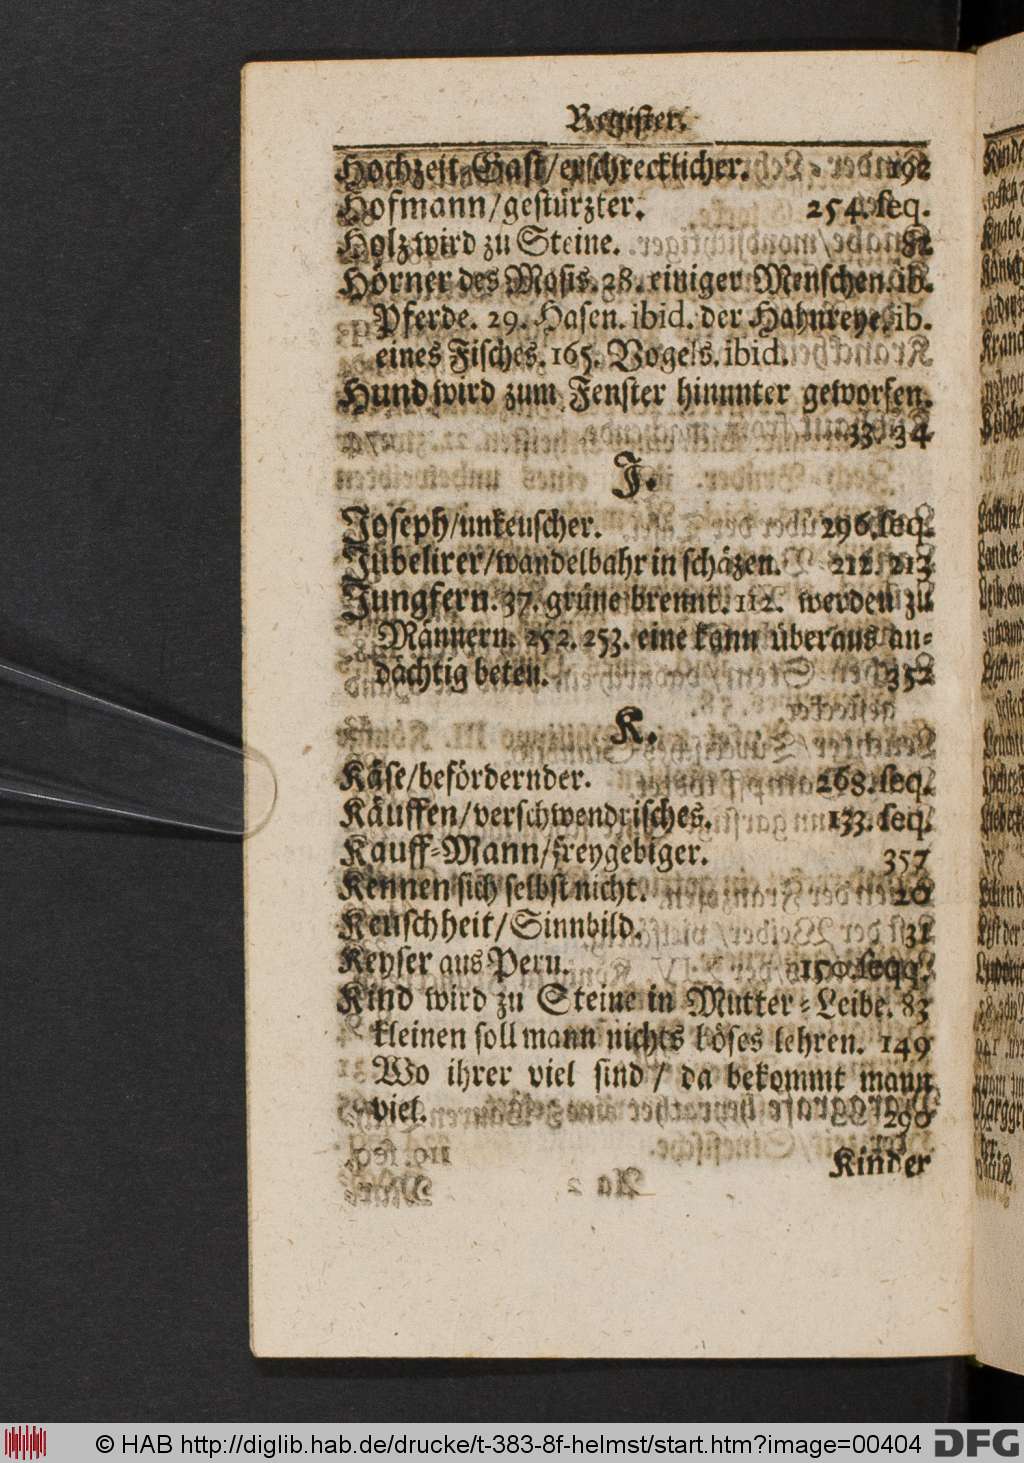 Register.
Hochzeit-Gast/erschrecklicher. 192
Hofmann/gestürzter. 254. seq.
Holz wird zu Steine. 82
Hörner des Mosis. 28. einiger Menschen. ib.
Pferde. 29. Hasen. ibid. der Hahnreye. ib.
eines Fisches. 165. Vogels. ibid.
Hund wird zum Fenster hinunter geworfen.
33. 34
J.
Joseph/unkeuscher. 296. seq.
Jubelirer/wandelbahr in schäzen. 212. 213
Jungfern. 37. grüne brennt. 112. werden zu
Männern. 252. 253. eine kann überaus an-
dächtig beten. 352
K.
Käse/befördernder. 268. seq.
Käuffen/verschwendrisches. 133. seq.
Kauff-Mann/freygebiger. 357
Kennen sich selbst nicht. 20
Keuschheit/Sinnbild. 31
Keyser aus Peru. 150. seqq.
Kind wird zu Steine in Mutter-Leibe. 83
kleinen soll mann nichts böses lehren. 149
Wo ihrer viel sind / da bekommt mann
viel. 290
Kinder
© HAB http://diglib.hab.de/drucke/t-383-8f-helmst/start.htm?image=00404 DFG